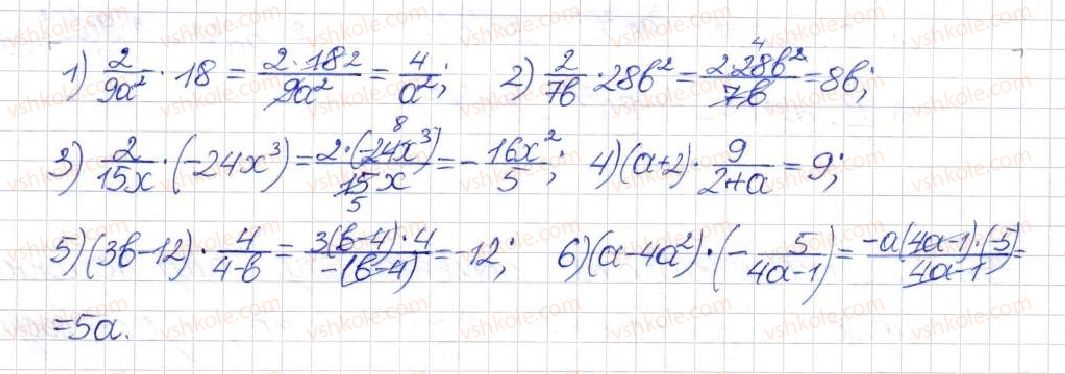 1) 2/9a² · 18 = 2·18 2/9a² = 4/a²; 2) 2/7b · 28b² = 2·28b² 4/7b = 8b;
3) 2/15x · (-24x³) = 2·(-24x³) 8/15x 5 = - 16x²/5; 4) (a+2) · 9/2+a = 9;
5) (3b-12) · 4/4-b = 3(b-4)·4/-(b-4) = -12; 6) (a-4a²) · (- 5/4a-1) = -a(4a-1)·(-5)/4a-1 =
= 5a.